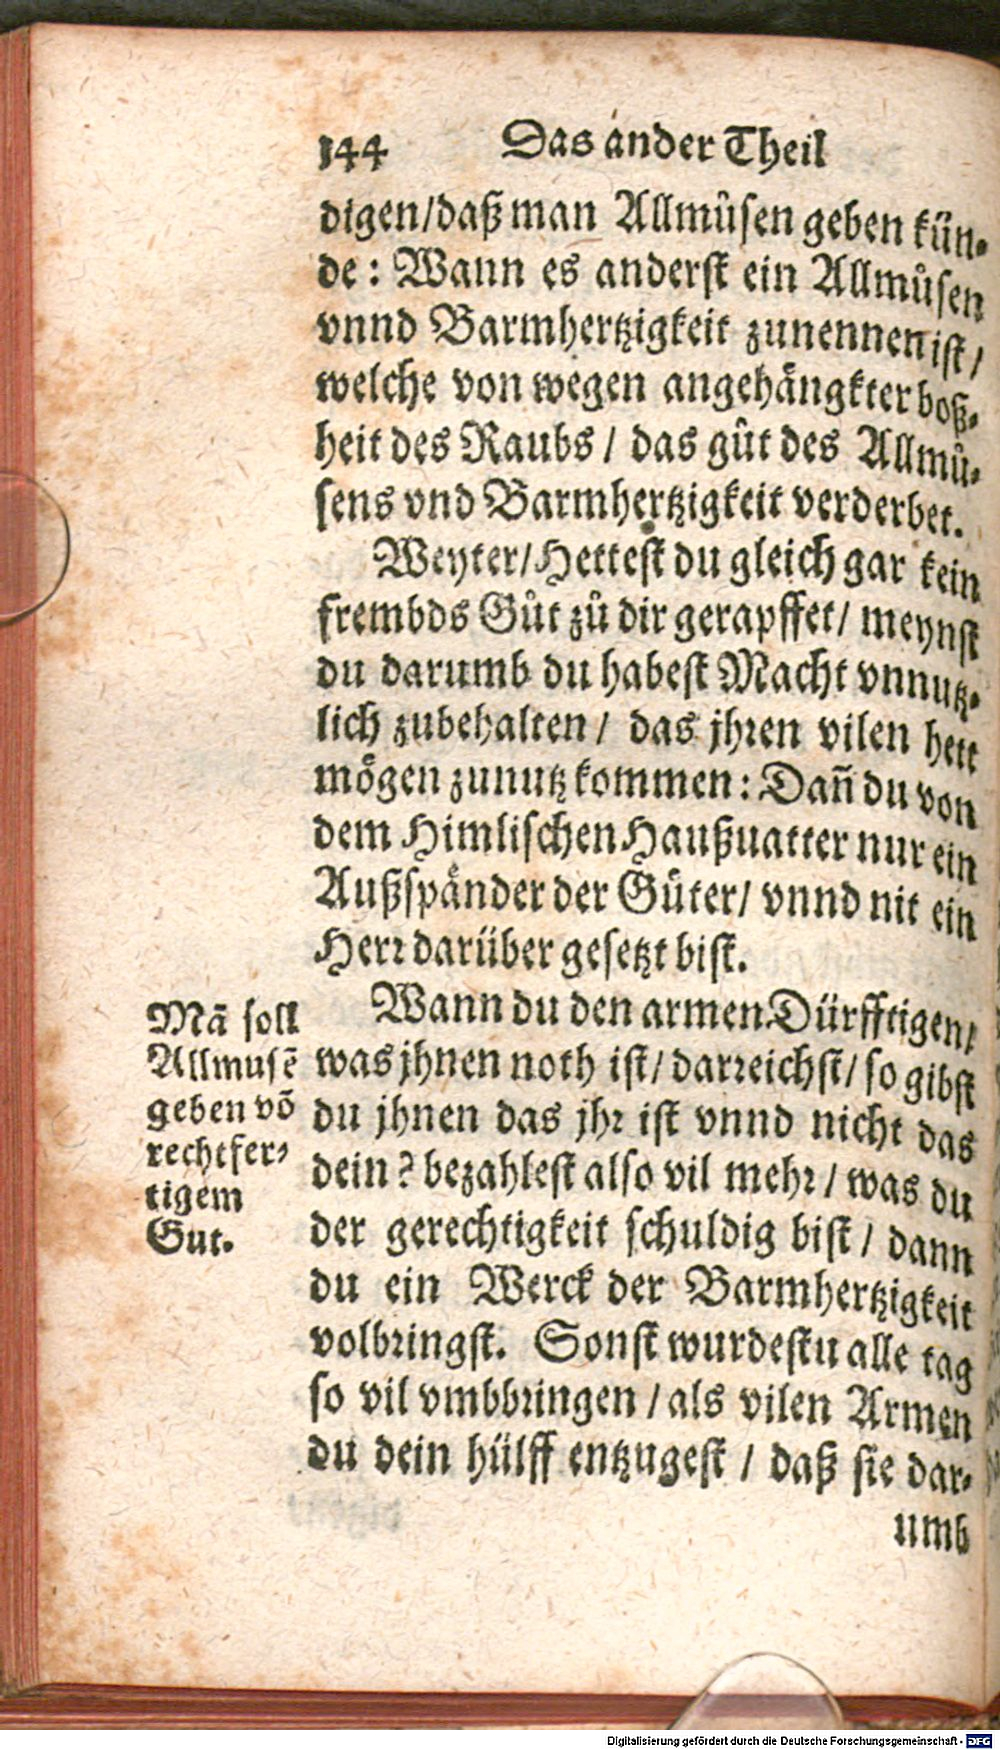 144 Das ander Theil
digen/daß man Allmůsen geben kün-
de: Wann es anderst ein Allmůsen
vnnd Barmhertzigkeit zunennen ist/
welche von wegen angehängkter boß-
heit des Raubs/ das gůt des Allmů-
sens vnd Barmhertzigkeit verderbet.
Weyter/Hettest du gleich gar kein
frembds Gůt zů dir gerapffet/ meynst
du darumb du habest Macht vnnutz-
lich zubehalten/ das jhren vilen hett
mögen zunutz kommen: Dañ du von
dem Himlischen Haußuatter nur ein
Außspänder der Güter/ vnnd nit ein
Herr darüber gesetzt bist.
Wann du den armen Dürfftigen/
was jhnen noth ist/ darreichst/ so gibst
du jhnen das jhr ist vnnd nicht das
dein? bezahlest also vil mehr/ was du
der gerechtigkeit schuldig bist/ dann
du ein Werck der Barmhertzigkeit
volbringst. Sonst wurdestu alle tag
so vil vmbbringen/als vilen Armen
du dein hülff entzugest/ daß sie dar-
umb
Mã soll
Allmusẽ
geben võ
rechtfer-
tigem
Gut.
Digitalisierung gefördert durch die Deutsche Forschungsgemeinschaft - DFG